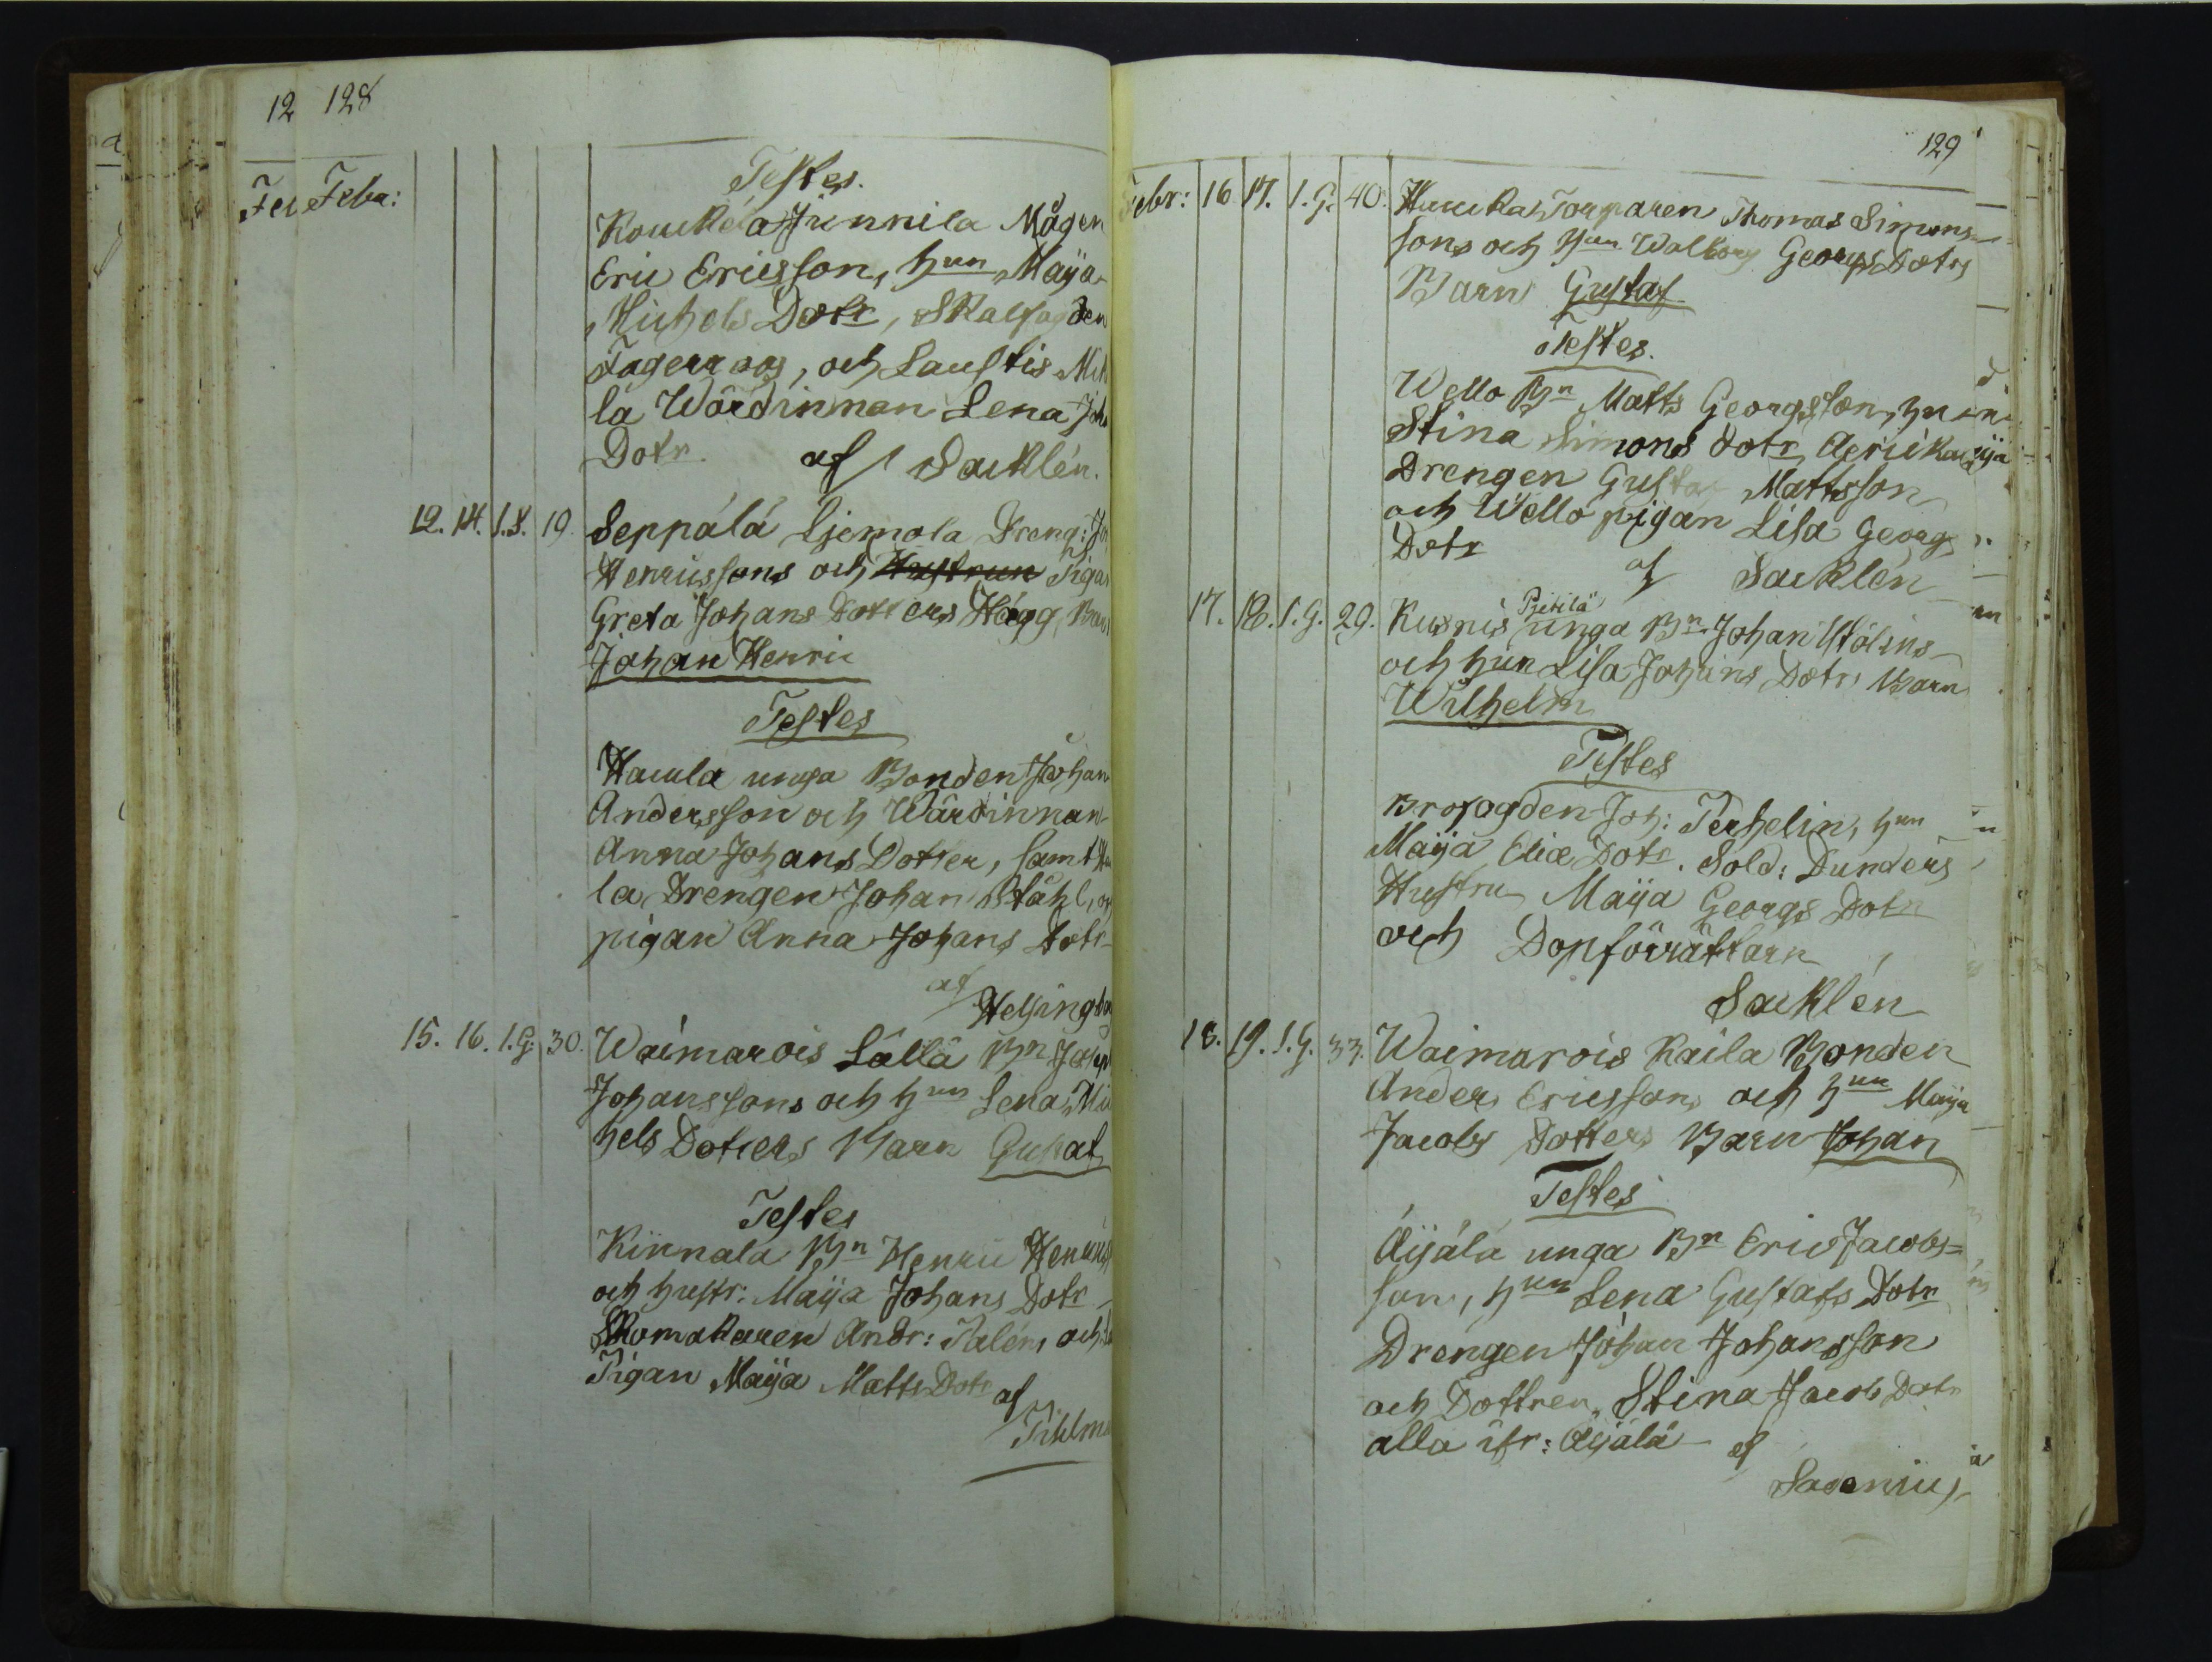 12 128
Febr:
Testes.
Kouckela Junnila Mågen
Eric Ericsson, hun Maija
Michels Dotr, Skalfogden
Fagerroos, och Laustis Mik
la Wärdinnan Lena Joh
Dotr af Sacklén.
12. 14. 1. S. 19. Seppälä Sjemola Dreng: Jo
Henricssons och Hustrun Pigan
Greta Johans Dotters Hägg Barn
Johan Henric
Testes
Haiula unga Bonden Johan
Andersson och Wärdinnan
Anna Johans Dotter, samt
la Drengen Johan Ståhl, och
pigan Anna Johans Dotr
af
Helsingb
15. 16. 1. G. 30. Waimarois Lällä Bn Joseph
Johanssons och hun Lena Mic
hels Dotters Barn Gustaf
Testes
Kinnala Bn Henric Henricss
och hustr: Maija Johans Dotr
Skomakaren Andr: Palén, och
Pigan Maija Matts Dotr
af
Pihlma
129
Febr: 16 17. 1. G. 40. Hauka Torparen Thomas Simons
sons och hun Walborg Georgs Dotrs
Barn Gustaf
Testes.
Wello Bn Matts Georgsson, hun
Stina Simons dotr
Drengen Gustaf Mattsson
och Wello pigan Lisa Georg
Dotr af Sacklén
Pietilä
17. 18. 1. G. 29. Kuxnis unga Bn Johan Stölins
och hun Lisa Johans Dotrs Barn
Wilhelm
Testes
Brofogden Joh: Perhelin, hun
Maija Eliæ Dotr. Sold: Dunders
Hustru Maija Georgs Dotr
och Dopförrättarn
Sacklén
18. 19. 1. G. 33. Waimarois Kaila Bonden
Anders Ericssons och hun Maija
Jacobs Dotters Barn Johan
Testes
Äijälä unga Bn Eric Jacobs=
son, hun Lena Gustafs Dotr
Drengen Johan Johansson
och Dottren Stina Jacobs Dotr
alla ifr: Äijälä af
Saxenius